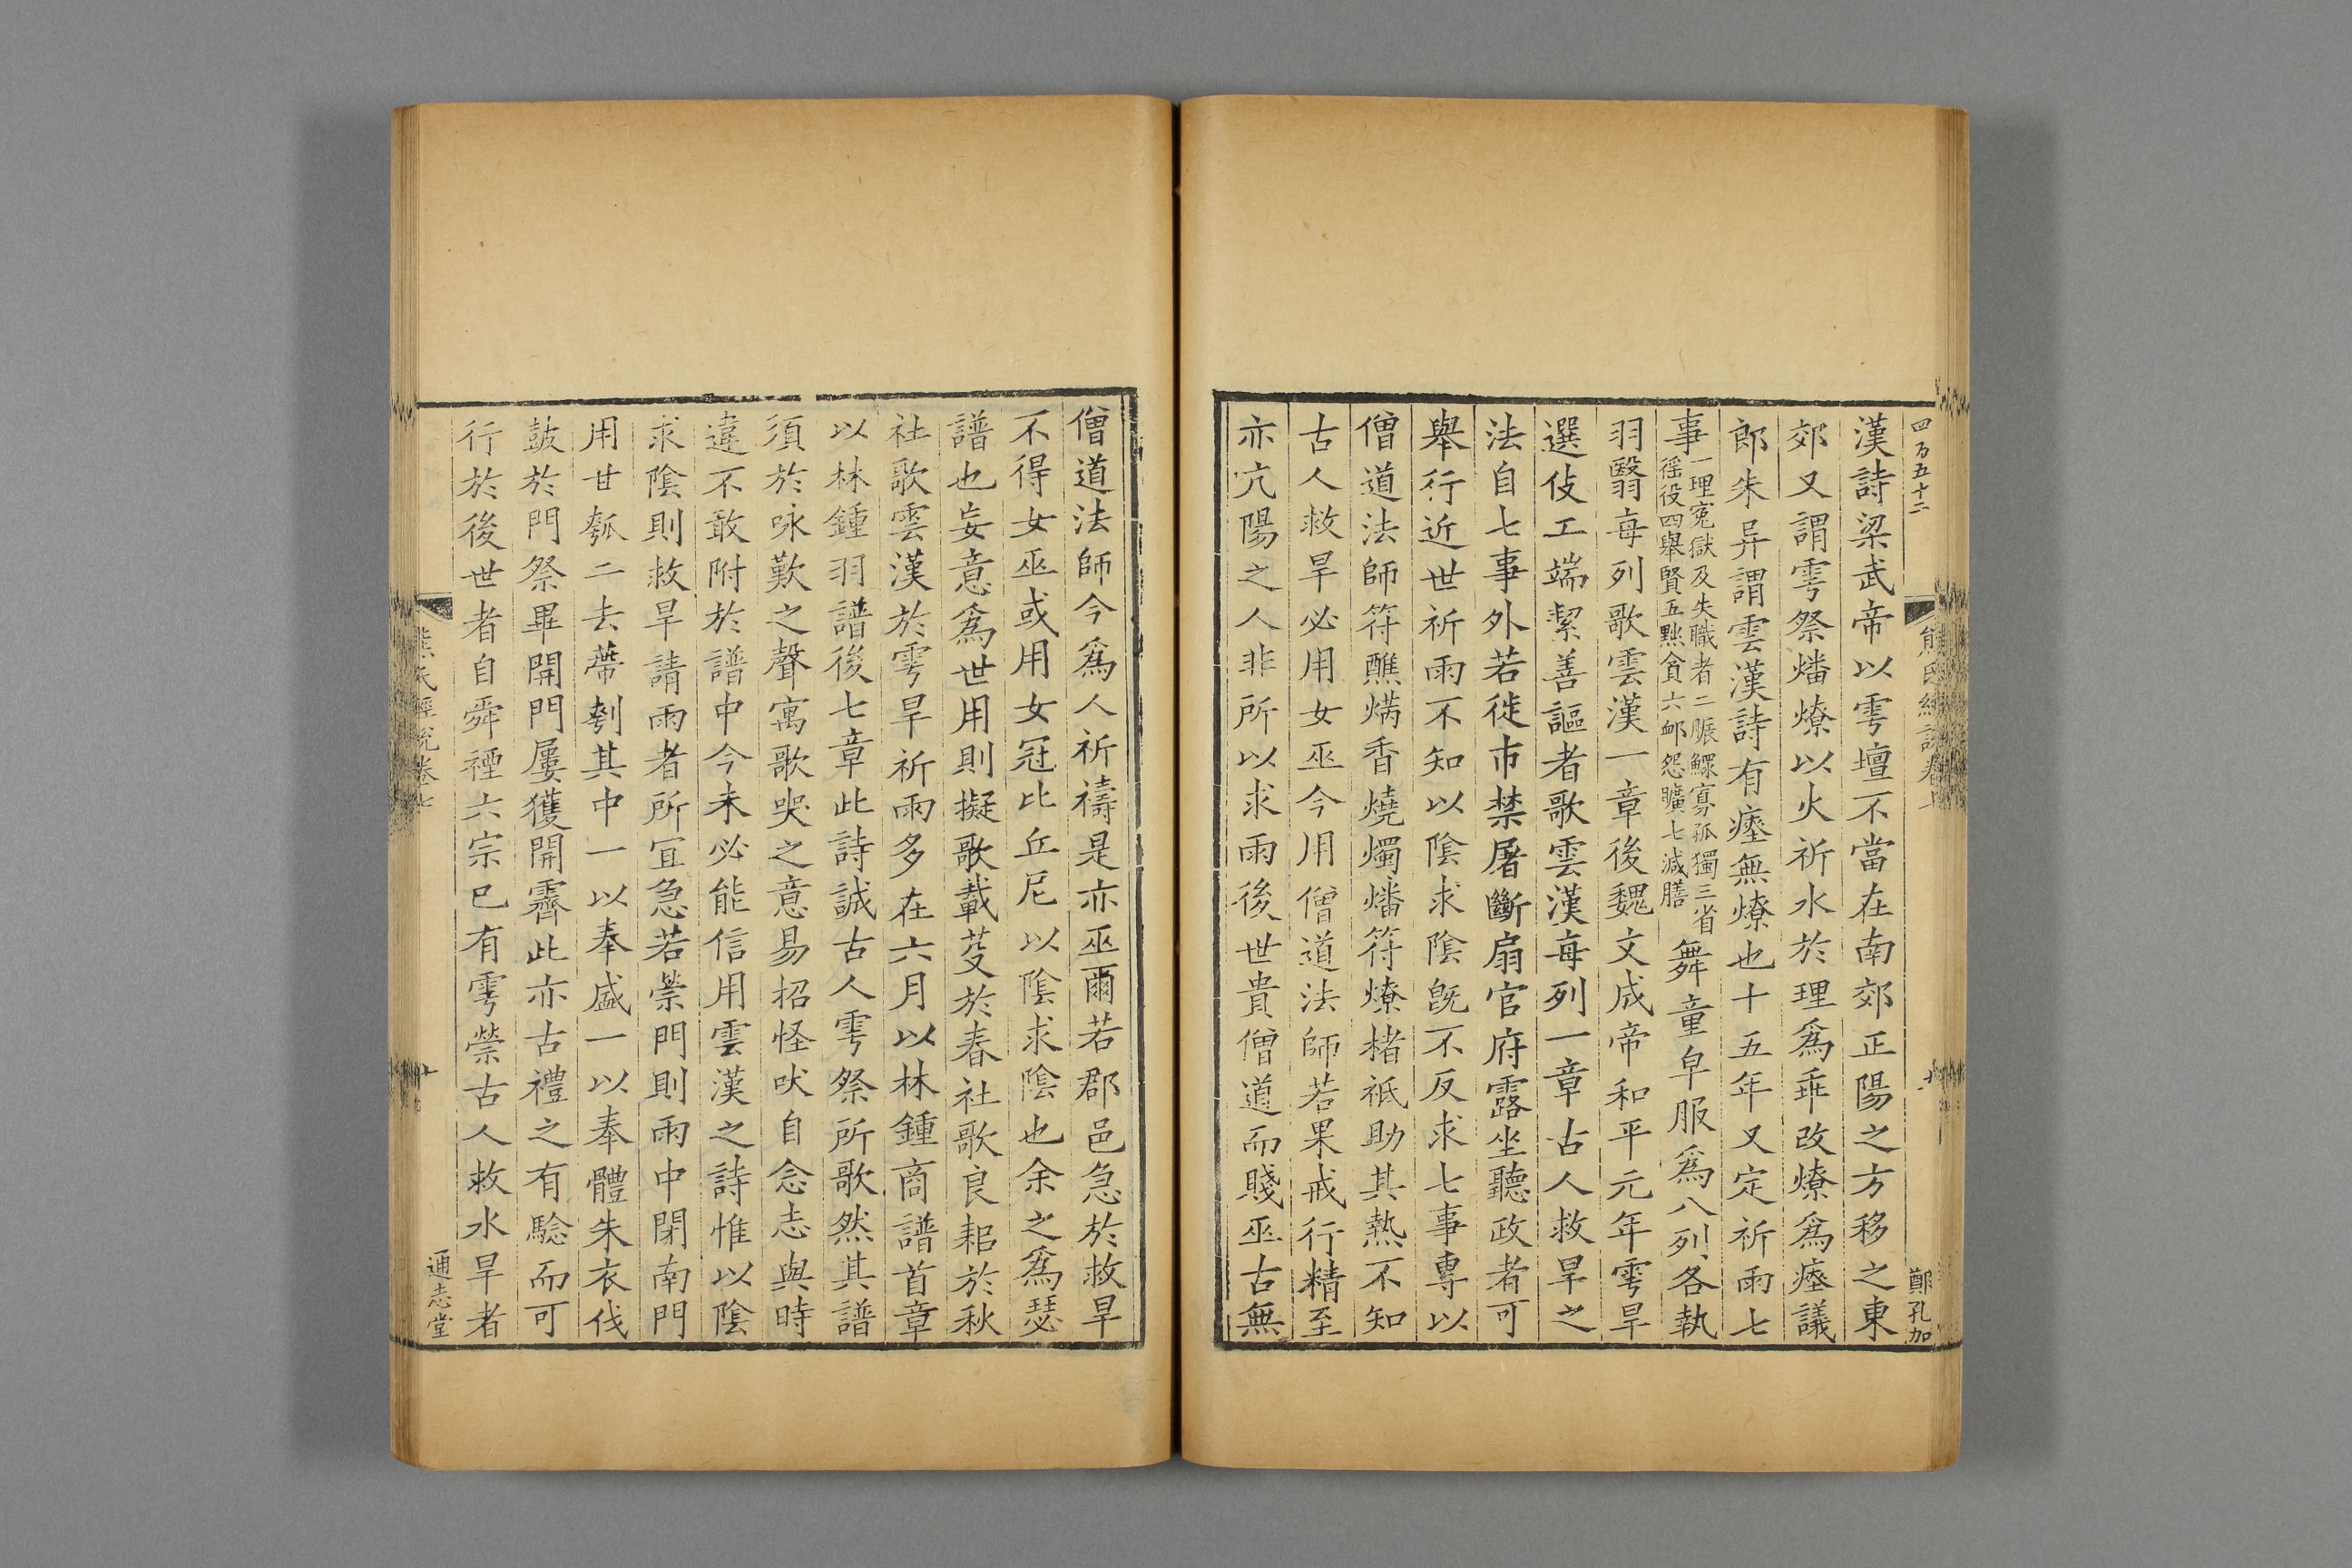 四百五十二
鄭孔加
漢詩梁武帝以雩壇不當在南郊正陽之方移之東
郊又謂雩祭燔燎以火祈水於理爲乖改燎爲瘞議
郎朱异謂雲漢詩有瘞無燎也十五年又定祈雨七
事一理寃獄及失職者二賑鰥寡孤獨三省
徭役四舉賢五黜貪六䘏怨曠七減膳
舞童皁服爲八列各執
羽翳每列歌雲漢一章後魏文成帝和平元年雩旱
選伎工端絜善謳者歌雲漢每列一章古人救旱之
法自七事外若徙市禁屠斷扇官府露坐聽政者可
舉行近世祈雨不知以陰求陰旣不反求七事專以
僧道法師符醮焫香燒燭燔符燎楮祗助其熱不知
古人救旱必用女巫今用僧道法師若果戒行精至
亦亢陽之人非所以求雨後世貴僧道而賤巫古無
僧道法師今爲人祈禱是亦巫爾若郡邑急於救旱
不得女巫或用女冠比丘尼以陰求陰也余之爲瑟
譜也妄意爲世用則擬歌載芟於春社歌良耜於秋
社歌雲漢於雩旱祈雨多在六月以林鍾商譜首章
以林鍾羽譜後七章此詩誠古人雩祭所歌然其譜
須於咏歎之聲寓歌哭之意易招怪吠自念志與時
違不敢附於譜中今未必能信用雲漢之詩惟以陰
求陰則救旱請雨者所宜急若禜門則雨中閉南門
用甘瓠二去蔕刳其中一以奉盛一以奉體朱衣伐
鼓於門祭畢開門屢獲開霽此亦古禮之有驗而可
行於後世者自舜禋六宗已有雩禜古人救水旱者
熊氏經說卷七
通志堂